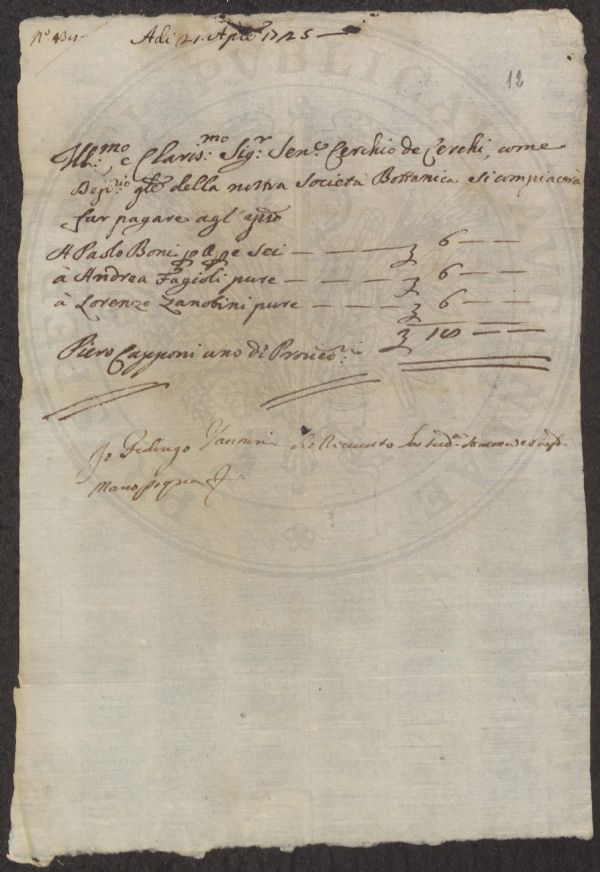 Adi 21 Aple 1725
12
Ill:mo e Claris:mo Sig:r Sen:e Cerchio de Cerchi, come
Dep:rio gle della nostra Società Bottanica si compiacerà
far pagare agl'
A Paolo Boni sei 6
à Andrea Fagioli pure 6
à Lorenzo Zanobini pure 6
18
Piero Capponi uno di Proved:ri
Io ho Riceuto la sud:a somma
Mano propria